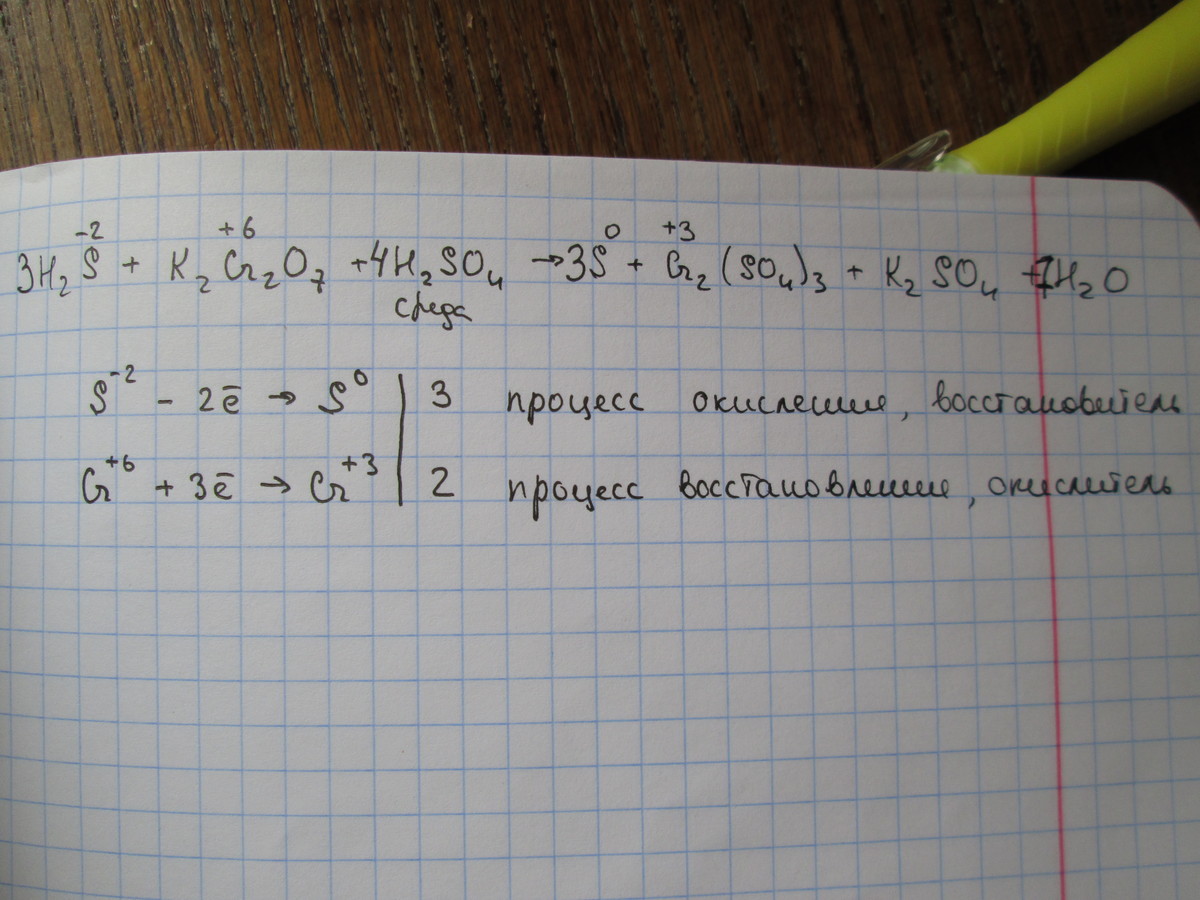 3H₂S⁻² + K₂Cr₂⁺⁶O₇ + 4H₂SO₄ → 3S⁰ + Cr₂⁺³(SO₄)₃ + K₂SO₄ + 7H₂O
среда
S⁻² - 2ē → S⁰ | 3 процесс окисления, восстановитель
Cr⁺⁶ + 3ē → Cr⁺³ | 2 процесс восстановления, окислитель